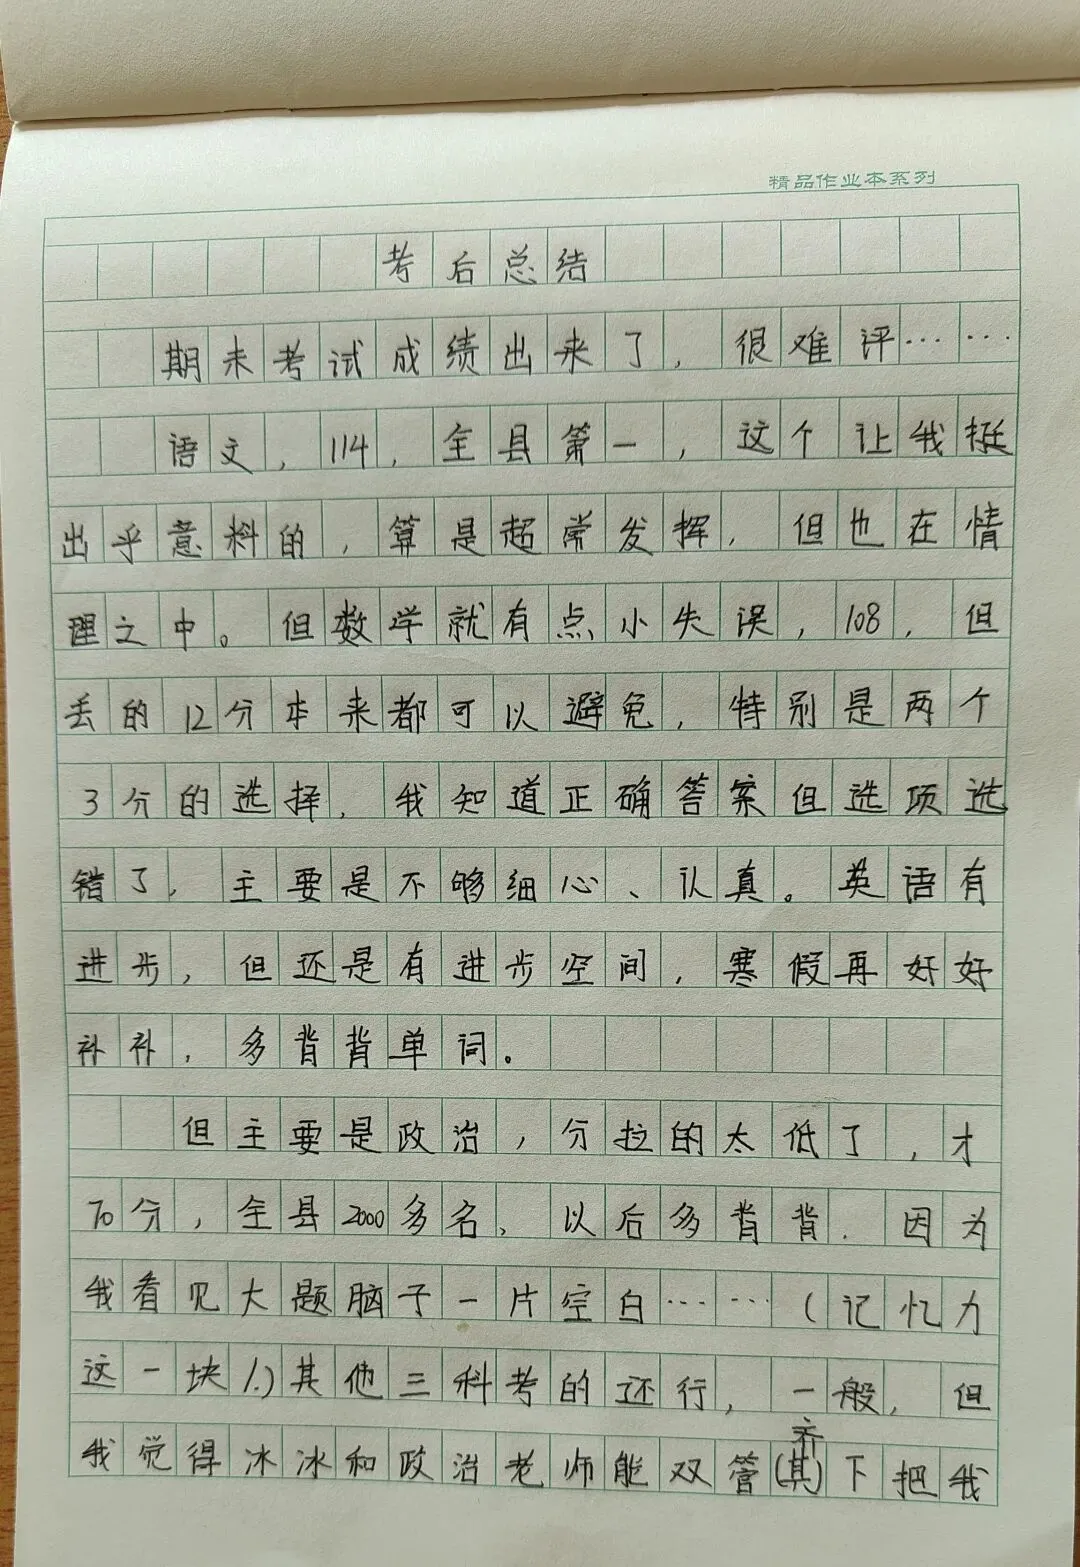 精品作业本系列
考后总结
期末考试成绩出来了，很难评……
语文，114，全县第一，这个让我挺
出乎意料的，算是超常发挥，但也在情
理之中。但数学就有点小失误，108，但
丢的12分本来都可以避免，特别是两个
3分的选择，我知道正确答案但选项选
错了，主要是不够细心、认真。英语有
进步，但还是有进步空间，寒假再好好
补补，多背背单词。
但主要是政治，分拉的太低了，才
70分，全县2000多名，以后多背背．因为
我看见大题脑子一片空白……（记忆力
这一块/.）其他三科考的还行，一般，但
齐
我觉得冰冰和政治老师能双管(其)下把我